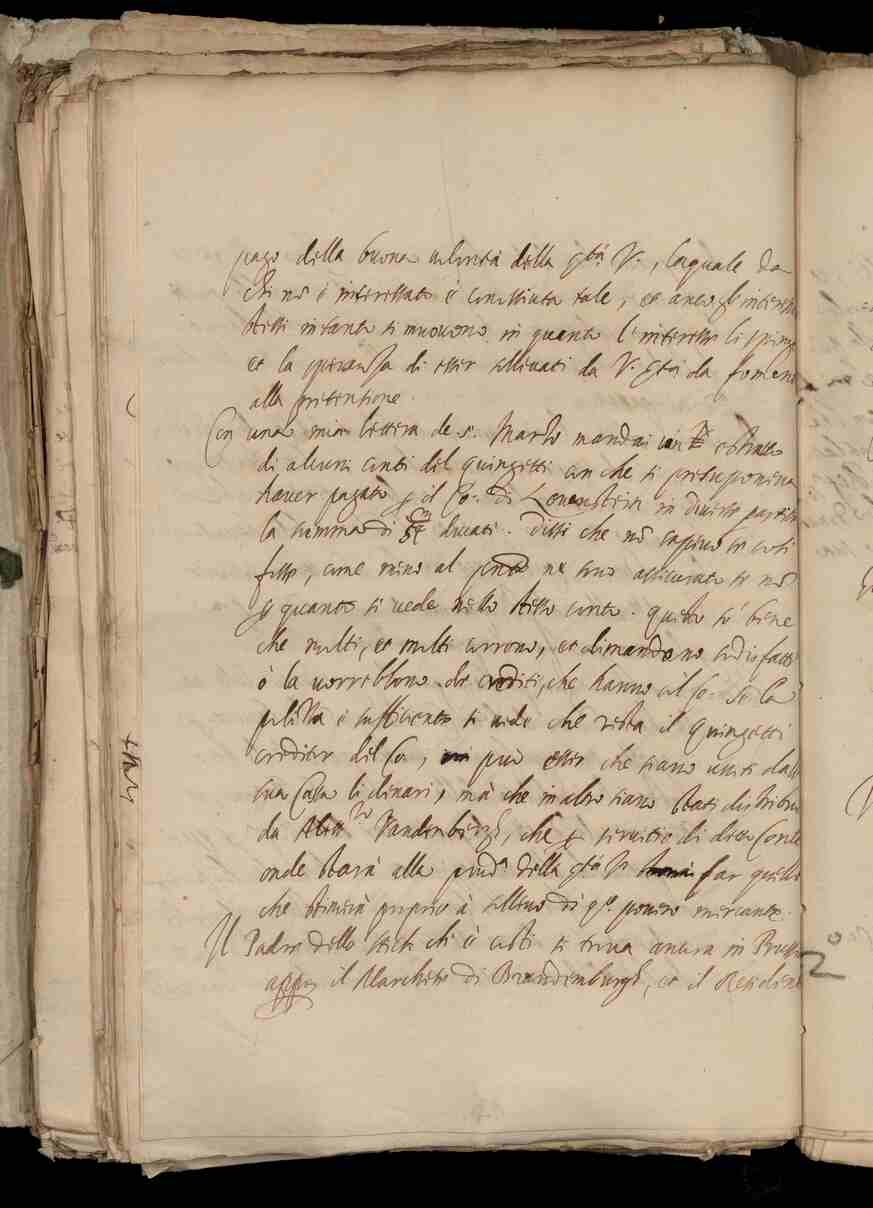 pago della buona volontà della Stà V., laquale da
chi nõ è interessato è conosciuta tale, et anco gl'interess
stessi intanto si muouono in quanto l'interesse li spinge
et la speranza di esser solleuati da V. Stà da fomento
alla pretensione.
Con una mia lettera de 5. Marzo mandai un estratto
di alcuni conti del quingetti con che si presuponeua
hauer pagato p il Co: di Leuenstein in diuerse partite
la summa di ducati. Dissi che nõ sapeuo se così
fosse, come meno al pnte ne sono assicurato se nõ
p quanto si uede nello stesso conto. questo sò bene
che molti, et molti corrono, et dimandano sodisfatt
ò la uorrebbono de crediti, che hanno col Co: Se la
polizza è sufficiente si uede che resta il quingetti
creditor del Co, può esser che siano usciti dalla
sua Cassa li dinari, mà che in altro siano stati distribui
da Vandenbergh, che p seruitio di detto Conte
onde starà alla prud.a della Stà V. far quello
che stimerà proprio à solleuo di q.o pouero mercante.
Il Padre dello che è costì si troua ancora in Prussia
appo il Marchese di Brandemburgh, et il Residen